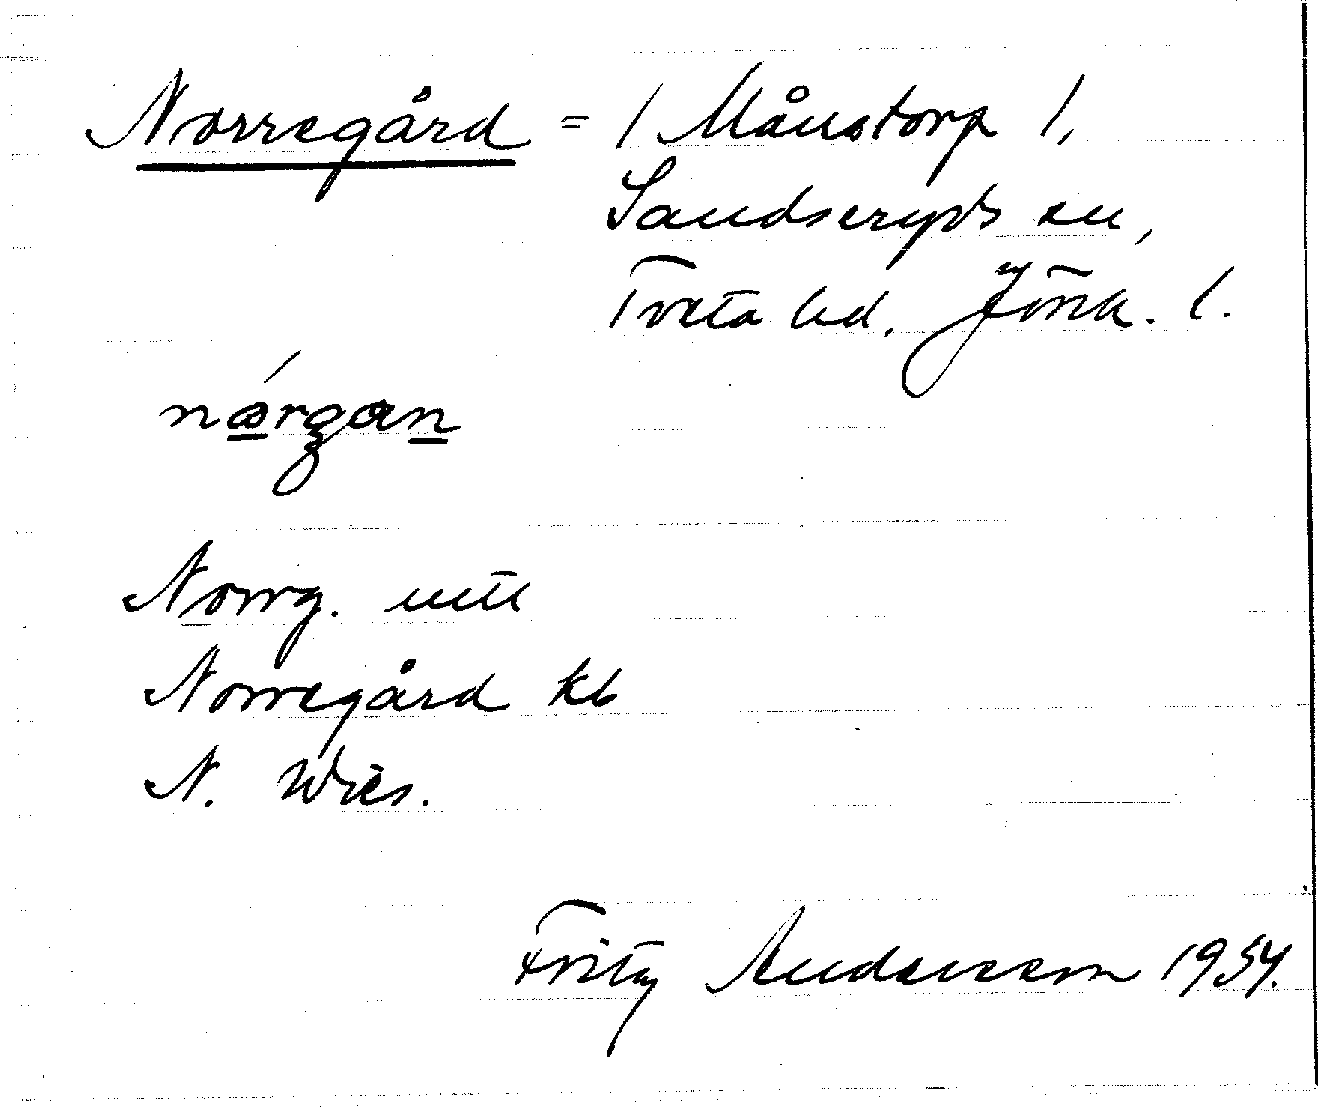 Norregård = / Månstorp /,
Sandseryds sn,
Tveta hd. Jönk. l.
nǿrgan
Norrg. utt
Norregård kb
N. Wies.
Fritz Andersson 1934.